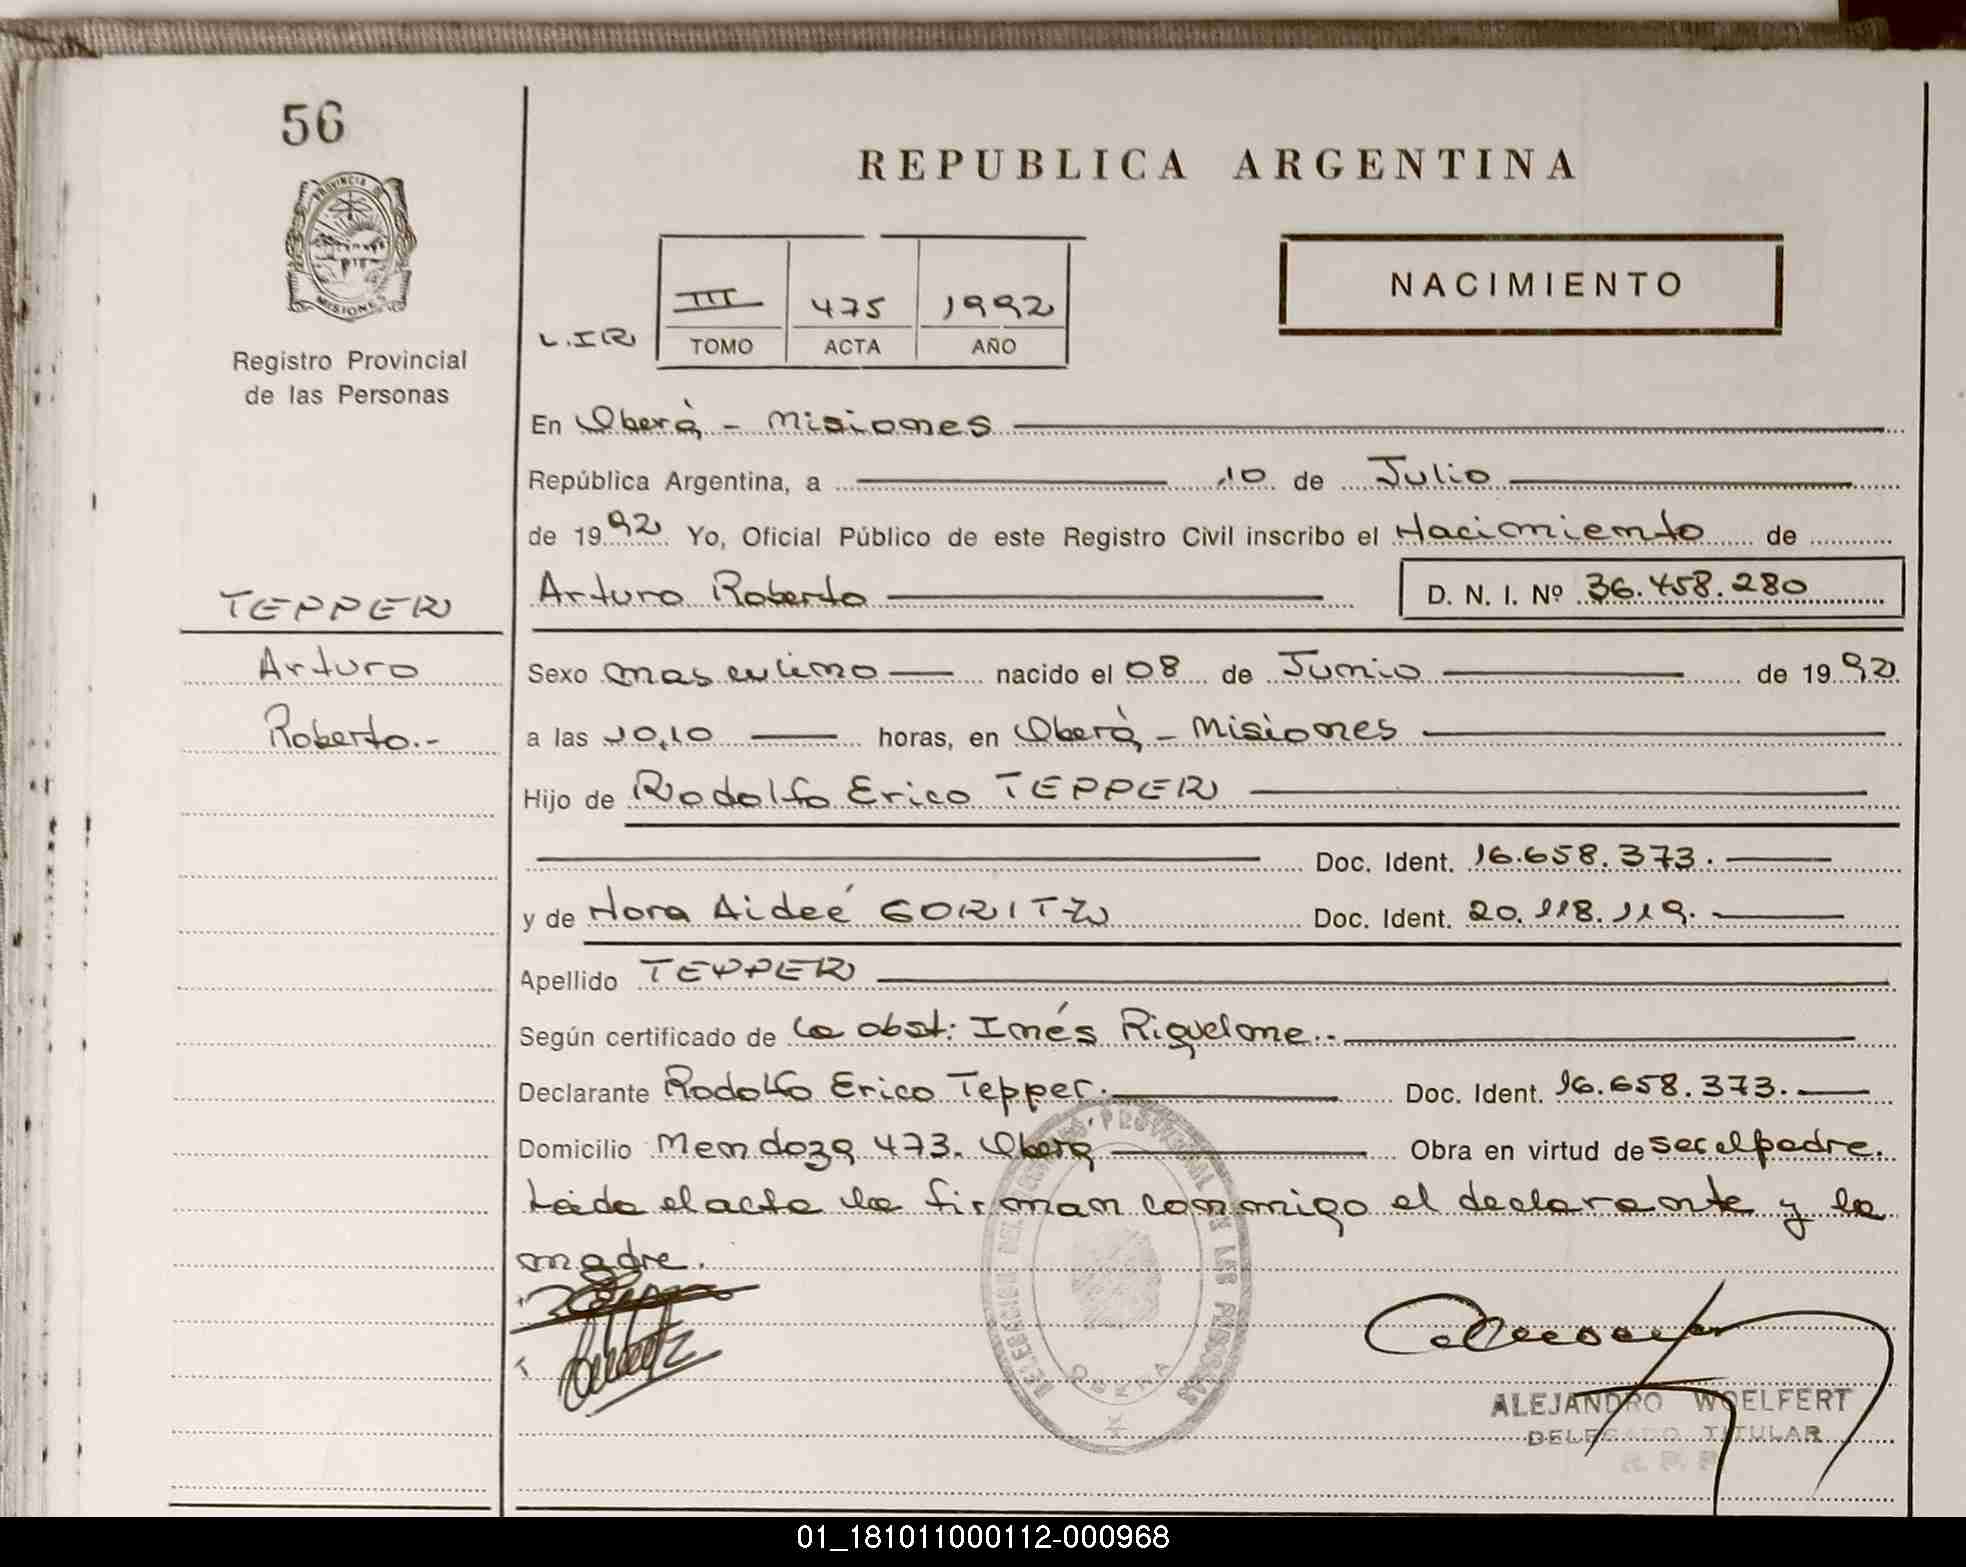 56
PROVINCIA DE
MISIONES
Registro Provincial
de las Personas
REPUBLICA ARGENTINA
NACIMIENTO
L.IR
III 475 1992
TOMO ACTA AÑO
En Oberá - Misiones
República Argentina, a 10 de Julio
de 1992 Yo, Oficial Público de este Registro Civil inscribo el Nacimiento de
Arturo Roberto D. N. I. Nº 36.458.280
TEPPER
Arturo
Roberto.-
Sexo masculino nacido el 08 de Junio de 1992
a las 10,10 horas, en Oberá - Misiones
Hijo de Rodolfo Erico TEPPER
Doc. Ident. 16.658.373.
y de Nora Aideé GORITZ Doc. Ident. 20.118.119.
Apellido TEPPER
Según certificado de la obst: Inés Riquelme.-
Declarante Rodolfo Erico Tepper. Doc. Ident. 16.658.373.
Domicilio Mendoza 473. Oberá Obra en virtud de ser el padre.
Leida el acta la firman conmigo el declarante y la
madre.
DELEGACION DEL REGISTRO PROVINCIAL DE LAS PERSONAS
OBERA
ALEJANDRO WOELFERT
DELEGADO TITULAR
R. P. P.
01_181011000112-000968